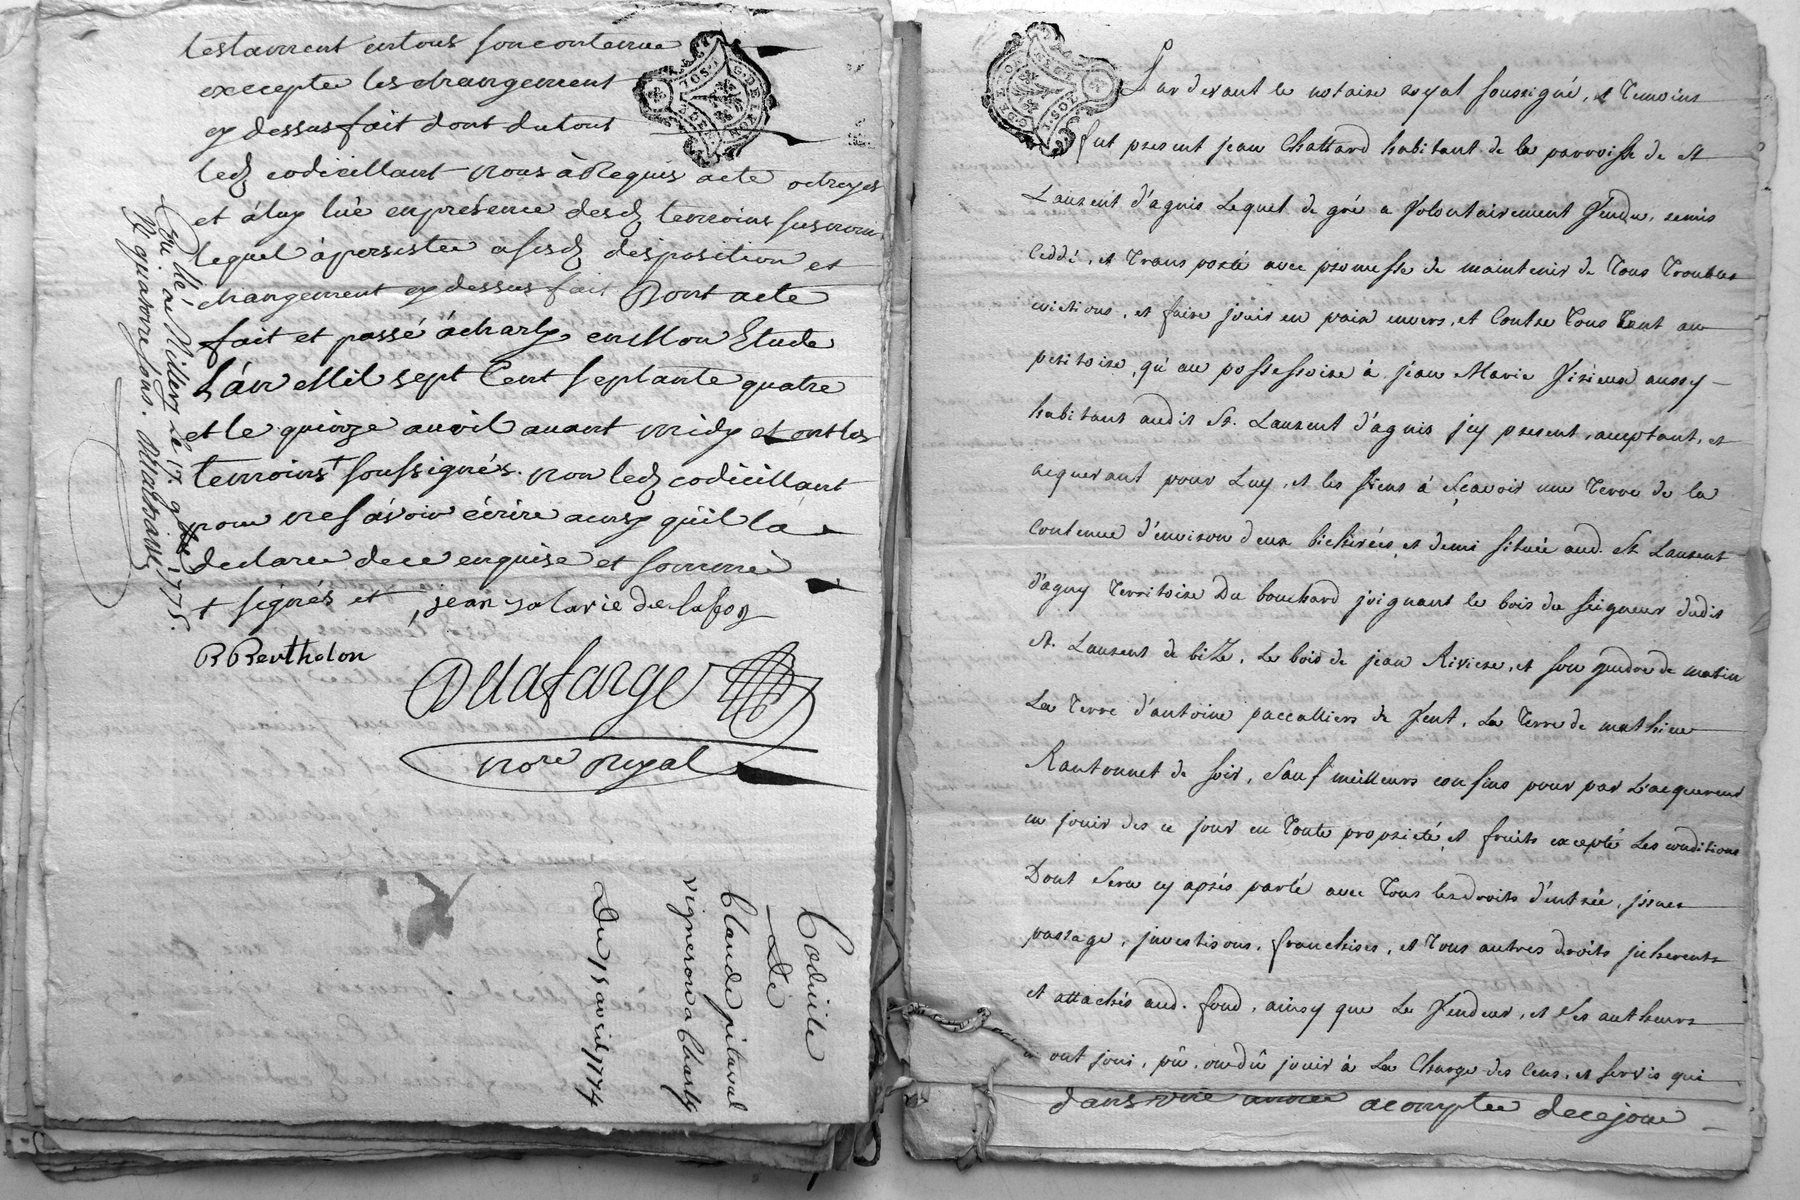 testament entous son contenue
excepte les changement
cy dessus fait dont du tout
led codicillant nous à Requis acte octroyes
et à luy lüe en présence desd temoins susnom
lequel à persistée asesd desposition et
changement cy dessus fait Dont acte
fait et passé à charly en Mon Etude
L'an Mil sept Cent septante quatre
et le quinze avril avant midy et ont les
temoins + soussignés. non led codicillant
pour ne savoir écrire ainsy qu'il la
declaree de ce enquise et sommé
+ signés et jean
B Berthelon
Delafarge
nore royal
Con. lé à Millery Le 17. 9bre 1775.
R quatorze sons.
Codicile
De
Claude pitaval
vigneron a Charly
Du 15 avril 1774
G. DE LYON
Pardevant le notaire royal soussigné, et Temoins
fut present jean Chattard habitant de la parroisse de St
Laurent d'agnis Lequel de gré a Volontairement Vendu, remis
Ceddé, et Transporté avec promesse de maintenir de Tous Troubles
evictions, et faire jouir en paix envers, et Contre Tous tant au
petitoire, qu'au possessoire à jean Marie aussy
habitant audit St. Laurent d'agnis jcy present, acceptant, et
acquerant pour Luy, et les siens à sçavoir une Terre de la
Contenue d'environ deux bicherées et demi située aud. St Laurent
d'agny Territoire Du bouchard joignant le bois du seigneur dudit
St. Laurent de bize, Le bois de jean Riviere, et son gendre de matin
La Terre d'antoine paccalliers de Vent, La Terre de mathieu
Ratonnet de soir, sauf meilleurs confins pour par L'acquereur
en jouir des ce jour en Toute proprieté, et fruits excepté Les conditions
Dont sera cy après parlé avec Tous les droits d'entrée, jssues
passage, franchises, et Tous autres droits jnherents
et attachés aud. fond, ainsy que Le Vendeur, et ses autheurs
en ont joui, pû, ou dû jouir à La Charge des Cens, et servis qui
dans une année a comptee de ce jour